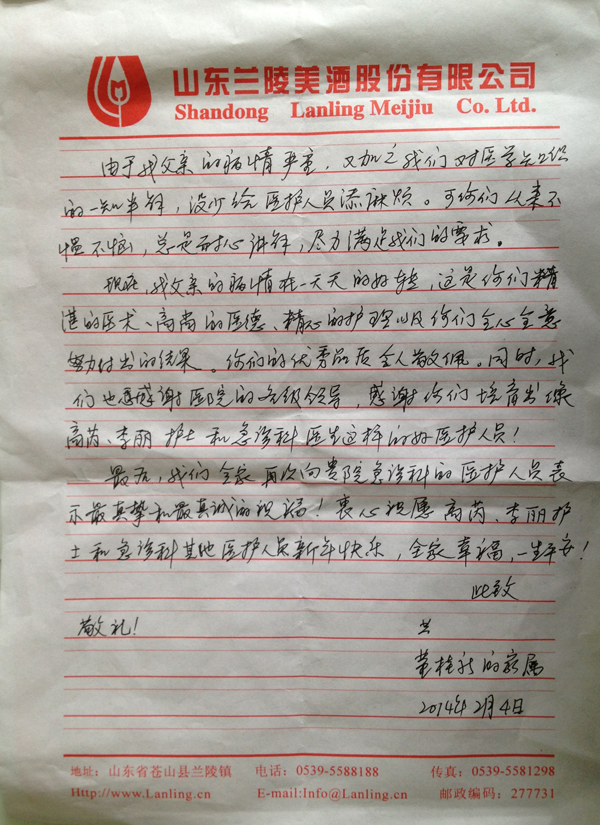 山东兰陵美酒股份有限公司
Shandong Lanling Meijiu Co. Ltd.
由于我父亲的病情严重，又加之我们对医学知识
的一知半解，没少给医护人员添麻烦。可你们从来不
愠不恼，总是耐心讲解，尽力满足我们的要求。
现在，我父亲的病情在一天天的好转，这是你们精
湛的医术、高尚的医德、精心的护理以及你们全心全意
努力付出的结果。你们的优秀品质令人敬佩。同时，我
们也要感谢医院的各级领导，感谢你们培育出像
高芮、李丽护士和急诊科医生这样的好医护人员！
最后，我们全家再次向贵院急诊科的医护人员表
示最真挚和最真诚的祝福！衷心祝愿高芮、李丽护
士和急诊科其他医护人员新年快乐，全家幸福，一生平安！
此致
敬礼！
桂 的家属
2014年2月4日
地址：山东省苍山县兰陵镇 电话：0539-5588188 传真：0539-5581298
Http://www.Lanling.cn E-mail:Info@Lanling.cn 邮政编码：277731